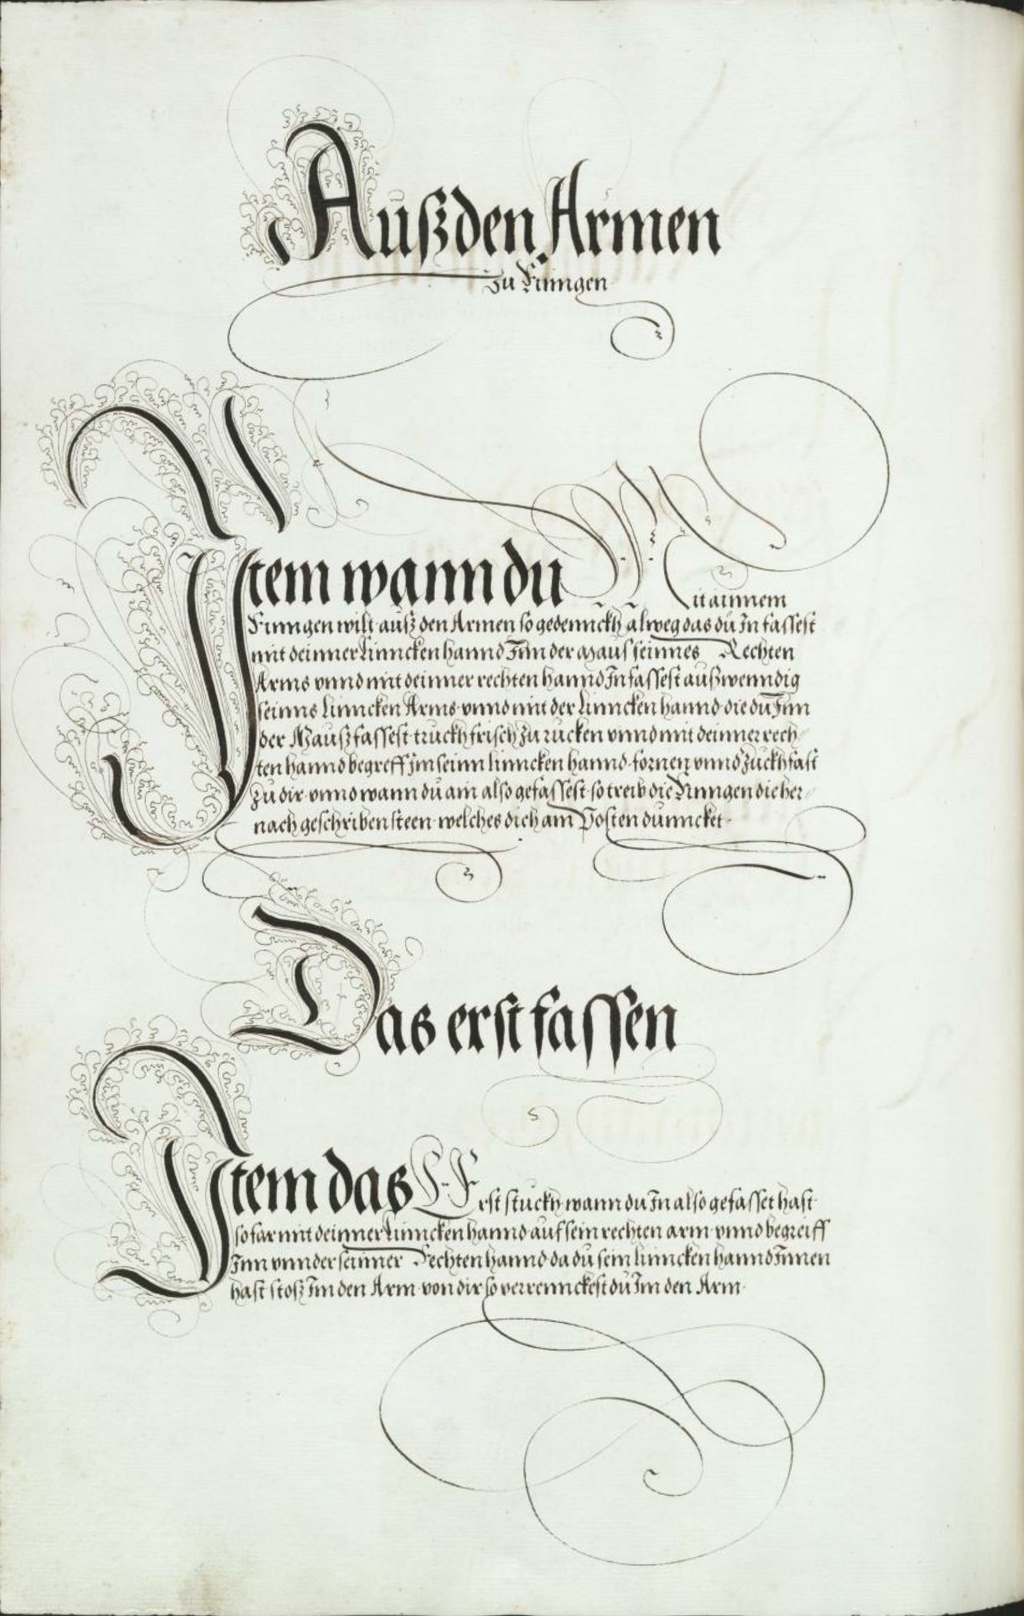 Außden Armen
zu Ringen
Item wann du Mit ainnem
Ringen wilt auß den Armen so gedennckh alweg das du In fassest
mit deinner Linncken hannd Inn der Maus seinnes Rechten
Arms vnnd mit deinner rechten hannd In fassest außwenndig
seinns Linncken Arms vnnd mit der Linncken hannd die du Inn
der Mauß fassest truckh frisch zu rucken vnnd mit deinner rech
ten hannd begreff jm seinn linncken hannd fornen vnnd zuckh fast
zu dir vnnd wann du ain also gefassest so treib die Ringen die her
nach geschriben steen welches dich am Posten dunncket
Das erst fassen
Item das Erst stuckh wann du In also gefasset hast
so far mit deinner Linncken hannd auf sein rechten arm vnnd begreiff
Inn vnnder seinner Rechten hannd da du sein linncken hannd Innen
hast stosz Im den Arm von dir so verrennckest du Im den Arm